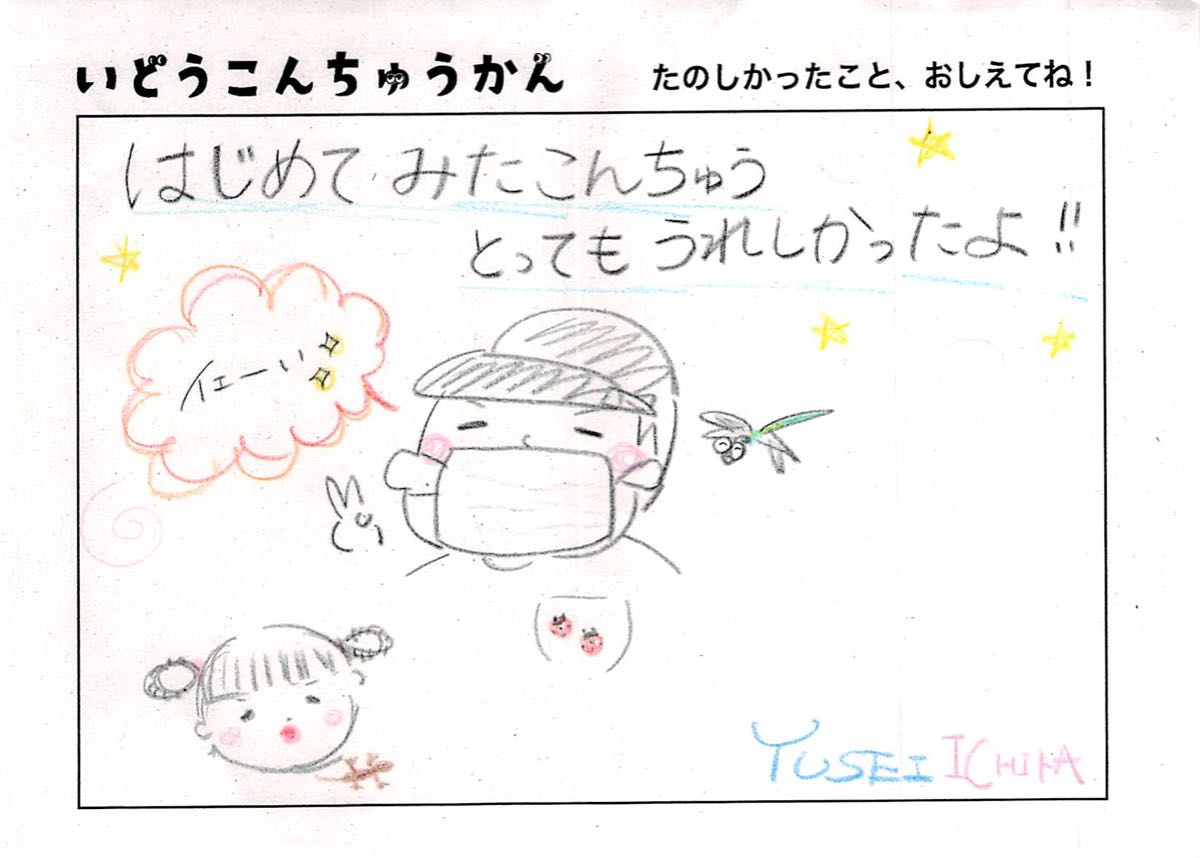 いどうこんちゅうかん
たのしかったこと、おしえてね！
はじめてみたこんちゅう
とってもうれしかったよ!!
イェーい
YUSEI ICHIKA